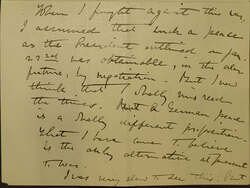 When I fought against this war,
I assumed that such a peace
as the President outlined on Jan.
22nd was obtainable, in the
future, by negotiation. But I now
think that I wholly misread
the times. A German peace
is a wholly different proposition.
That I have come to believe
is the only alternative
to war.
I was very slow to see this. But